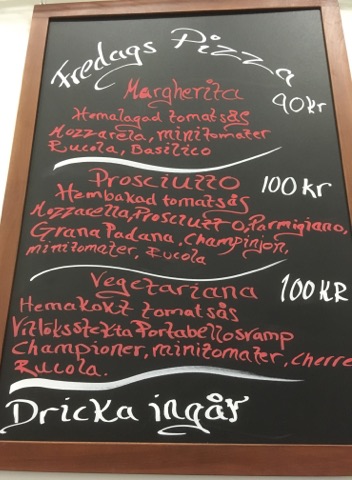 Fredags Pizza
Margherita
90kr
Hemalagad tomatsås
Mozzarela, minitomater
Rucola, Basilico
Prosciutto 100kr
Hembakad tomatsås
Mozzarella, Prosciutto, Parmigiano,
Grana Padana, Champinjon,
minitomater, Rucola
Vegetariana 100KR
Hemakokt tomatsås
Vitlöksstekta Portabellosvamp
Championer, minitomater, cherre
Rucola.
Dricka ingår